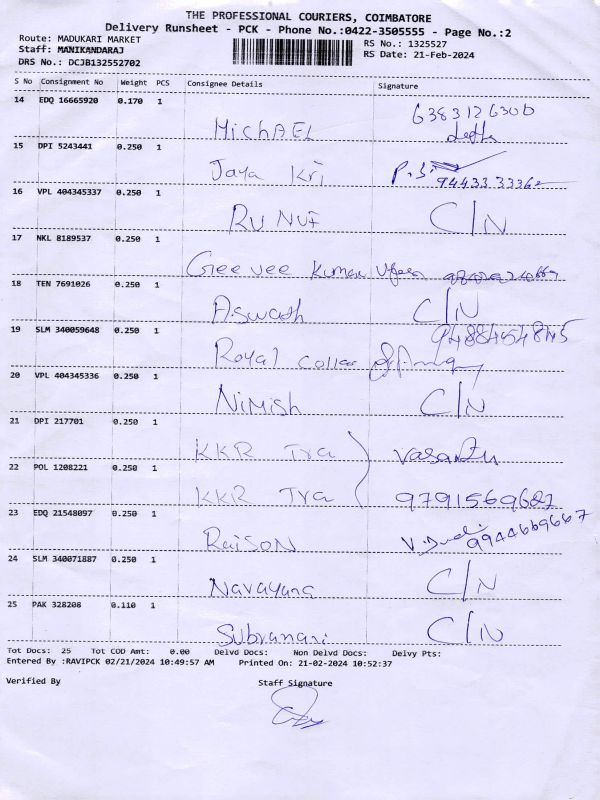 THE PROFESSIONAL COURIERS, COIMBATORE
Delivery Runsheet - PCK - Phone No.:0422-3505555 - Page No.:2
Route: MADUKARI MARKET
RS No.: 1325527
Staff: MANIKANDARAJ
RS Date: 21-Feb-2024
DRS No.: DCJB132552702
S No Consignment No Weight PCS Consignee Details Signature
14 EDQ 16665920 0.170 1
MichAEL 6383126300
15 DPI 5243441 0.250 1
Jaya Kri P.S 9443333362
16 VPL 404345337 0.250 1
RU NUF C/N
17 NKL 8189537 0.250 1
Geevee Kumar
18 TEN 7691026 0.250 1
Aswath C/N
19 SLM 340059648 0.250 1
Royal 9488454845
20 VPL 404345336 0.250 1
Nimish C/N
21 DPI 217701 0.250 1
KKR Tra
22 POL 1208221 0.250 1
KKR Tra 9791569687
23 EDQ 21548097 0.250 1
RaiSON 9944669667
24 SLM 340071887 0.250 1
Narayana C/N
25 PAK 328208 0.110 1
Subramani C/N
Tot Docs: 25 Tot COD Amt: 0.00 Delvd Docs: Non Delvd Docs: Delvy Pts:
Entered By :RAVIPCK 02/21/2024 10:49:57 AM Printed On: 21-02-2024 10:52:37
Verified By Staff Signature